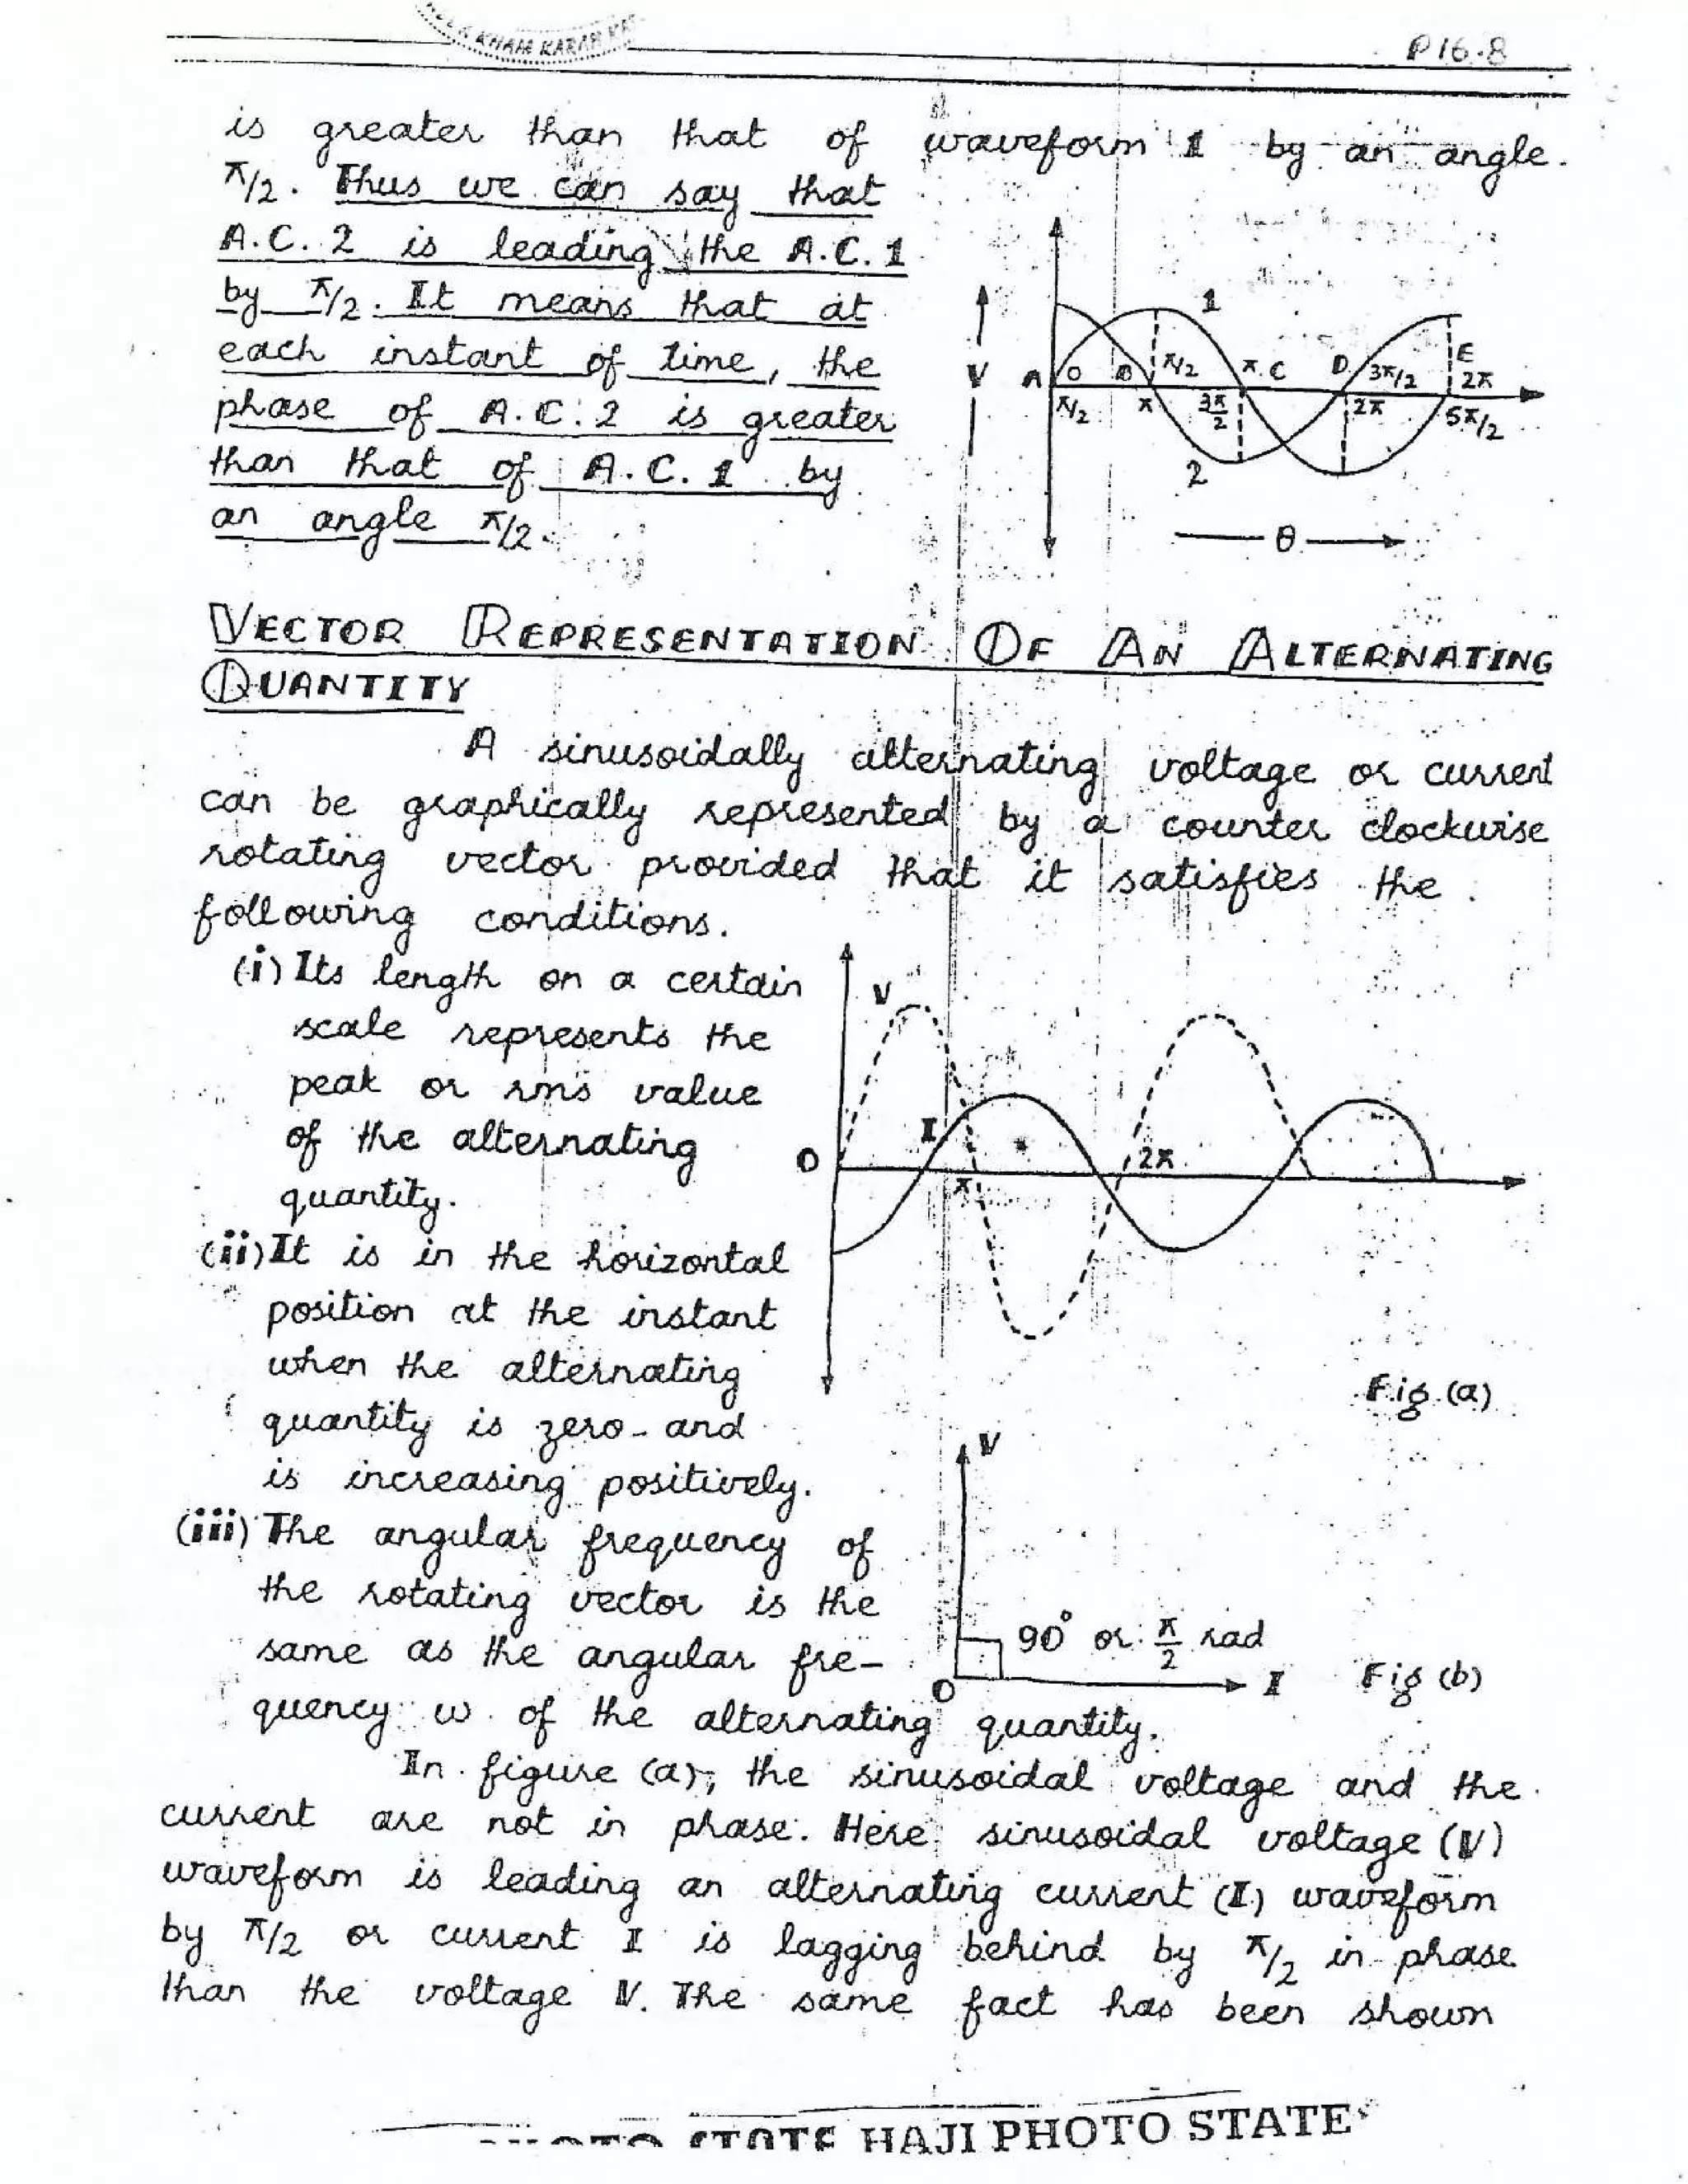 KHAM KARAM
P16.8
is greater than that of waveform 1 by an angle.
π/2. Thus we can say that
A.C. 2 is leading the A.C. 1
by π/2. It means that at
each instant of time, the
phase of A.C. 2 is greater
than that of A.C. 1 by
an angle π/2.
1
V A O B π/2 π C D 3π/2 E 2π
π/2 π 3π/2 2π 5π/2
2
θ
VECTOR REPRESENTATION OF AN ALTERNATING
QUANTITY
A sinusoidally alternating voltage or current
can be graphically represented by a counter clockwise
rotating vector provided that it satisfies the
following conditions.
(i) Its length on a certain
scale represents the
peak or rms value
of the alternating
quantity.
(ii) It is in the horizontal
position at the instant
when the alternating
quantity is zero and
is increasing positively.
V
I
O π 2π
Fig (a)
(iii) The angular frequency of
the rotating vector is the
same as the angular fre-
quency ω of the alternating quantity.
V
90° or π/2 rad
O I Fig (b)
In figure (a), the sinusoidal voltage and the
current are not in phase. Here sinusoidal voltage (V)
waveform is leading an alternating current (I) waveform
by π/2 or current I is lagging behind by π/2 in phase
than the voltage V. The same fact has been shown
HAJI PHOTO STATE